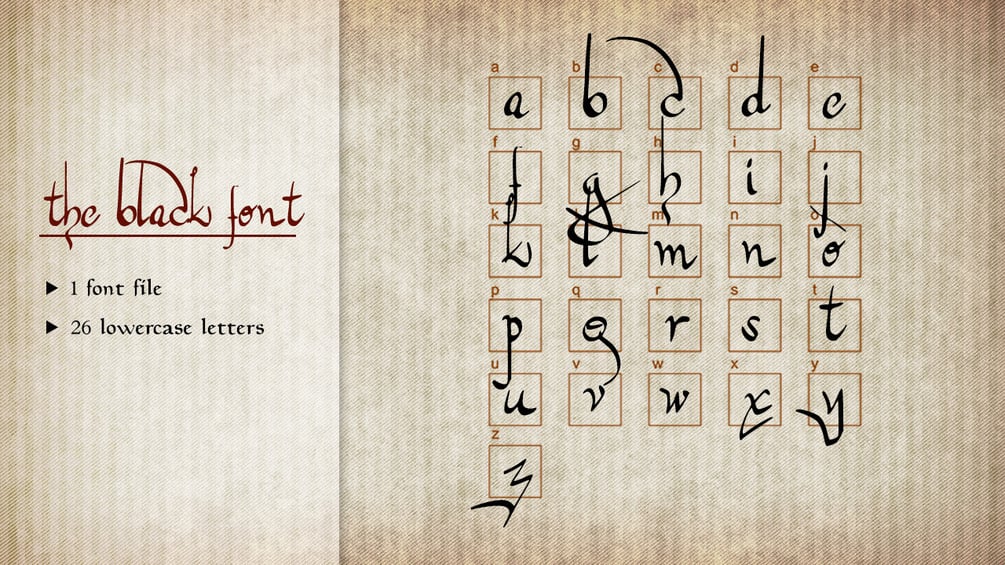 the black font
▶ 1 font file
▶ 26 lowercase letters
a b c d e
a b c d e
f g h i j
f g h i j
k m n o
k l m n o
p q r s t
p q r s t
u v w x y
u v w x y
z
z